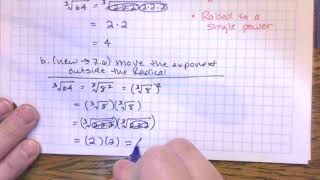 ∛64 = ∛(2·2·2)(2·2·2)
= 2·2
= 4
• Raised to a
single power.
b. (new → 7.6) move the exponent
outside the Radical
∛64 = ∛8² = (∛8)²
= (∛8)(∛8)
= (∛2·2·2)(∛2·2·2)
= (2)(2) =